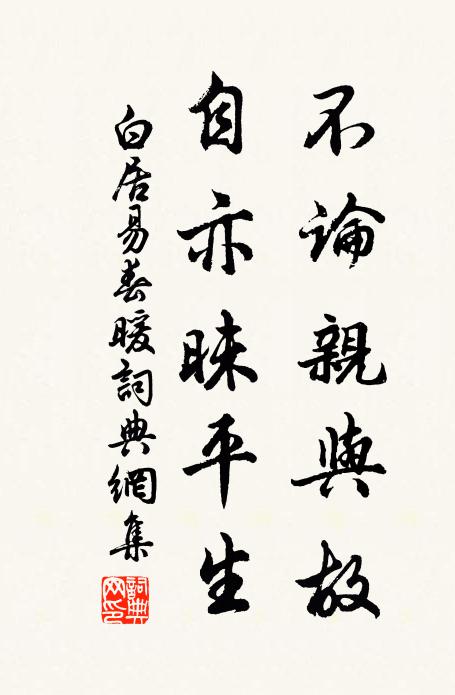 不論親與故
自亦昧平生
白居易春暖詞典網集
詞典
網印